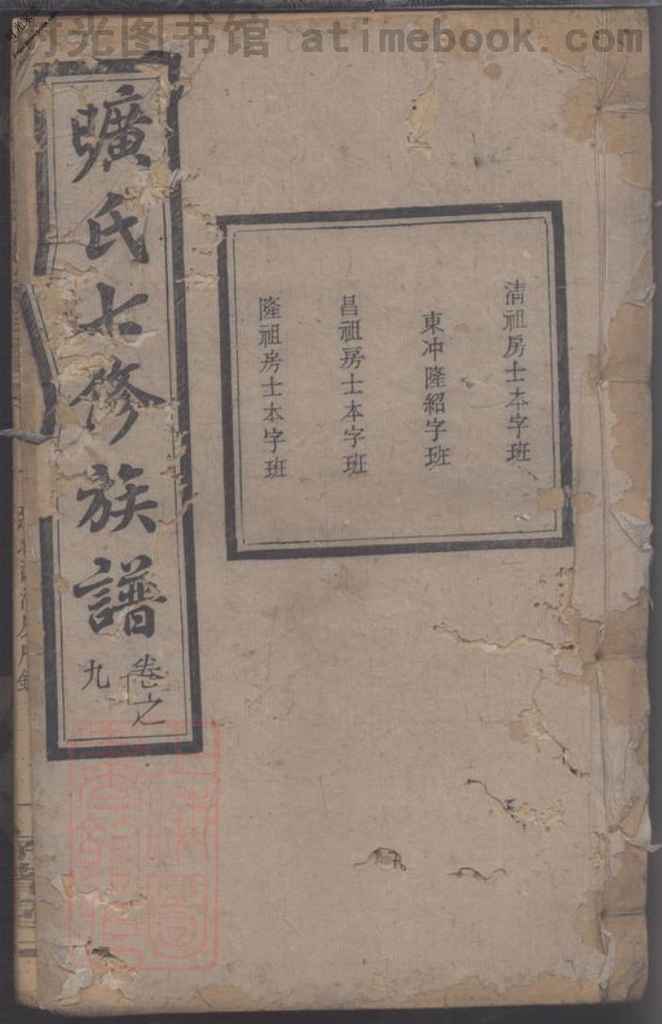 时光图书馆 atimebook.com
清祖房士本字班
東冲隆紹字班
昌祖房士本字班
隆祖房士本字班
曠氏七修族譜
卷之
九